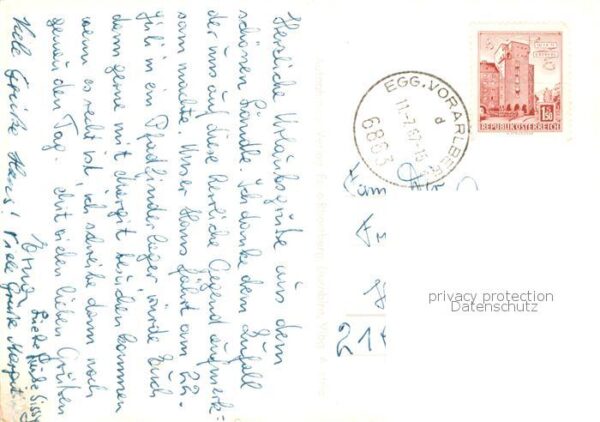 Herzliche Urlaubsgrüße aus dem
schönen Ländle. Ich danke dem Zufall
der uns auf diese herrliche Gegend aufmerk-
sam machte. Unser Hans fährt am 22.
Juli in ein Pfadfinderlager, würde Euch
dann gerne mit Margit besuchen kommen
wenn es recht ist, ich schreibe dann noch
genau den Tag. Mit vielen lieben Grüßen
Erna
Viele Grüße Hans! Viele Grüße Margit
Liebe Grüße Sissy
EGG, VORARLBERG
d
11-7.67-15
6863
1.50
REPUBLIK ÖSTERREICH
Fam
214
privacy protection
Datenschutz